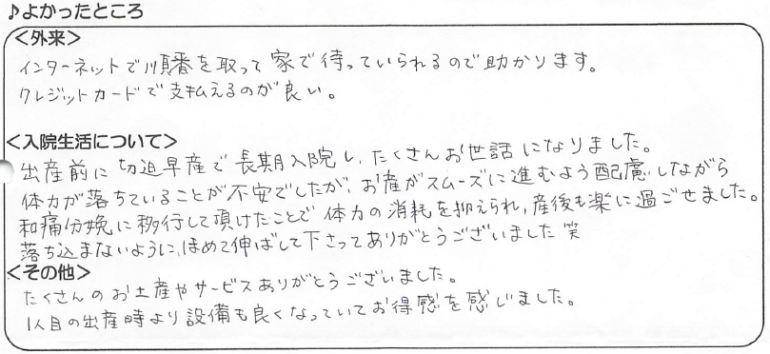 ♪よかったところ
＜外来＞
インターネットで順番を取って家で待っていられるので助かります。
クレジットカードで支払えるのが良い。
＜入院生活について＞
出産前に切迫早産で長期入院し、たくさんお世話になりました。
体力が落ちていることが不安でしたが、お産がスムーズに進むよう配慮しながら
和痛分娩に移行して頂けたことで体力の消耗を抑えられ、産後も楽に過ごせました。
落ち込まないように、ほめて伸ばして下さってありがとうございました 笑
＜その他＞
たくさんのお土産やサービスありがとうございました。
1人目の出産時より設備も良くなっていてお得感を感じました。